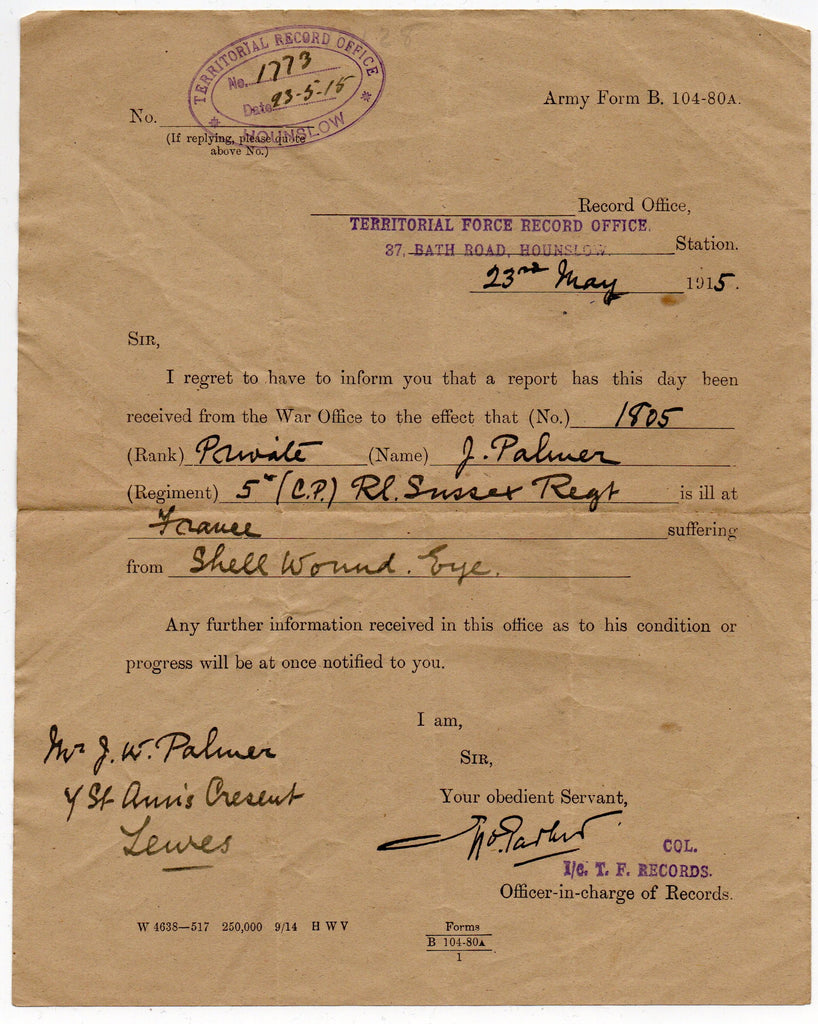 TERRITORIAL RECORD OFFICE
No. 1773
Date 23-5-15
HOUNSLOW
Army Form B. 104-80A.
No.
(If replying, please quote
above No.)
Record Office,
TERRITORIAL FORCE RECORD OFFICE.
37, BATH ROAD, HOUNSLOW. Station.
23rd May 1915.
SIR,
I regret to have to inform you that a report has this day been
received from the War Office to the effect that (No.) 1805
(Rank) Private (Name) J. Palmer
(Regiment) 5th (C.P.) Rl. Sussex Regt is ill at
France suffering
from Shell Wound. Eye.
Any further information received in this office as to his condition or
progress will be at once notified to you.
I am,
SIR,
Your obedient Servant,
COL.
I/C. T. F. RECORDS.
Officer-in-charge of Records.
Mr J. W. Palmer
St Ann's Cresent
Lewes
W 4638—517 250,000 9/14 H W V
Forms
B 104-80A
1